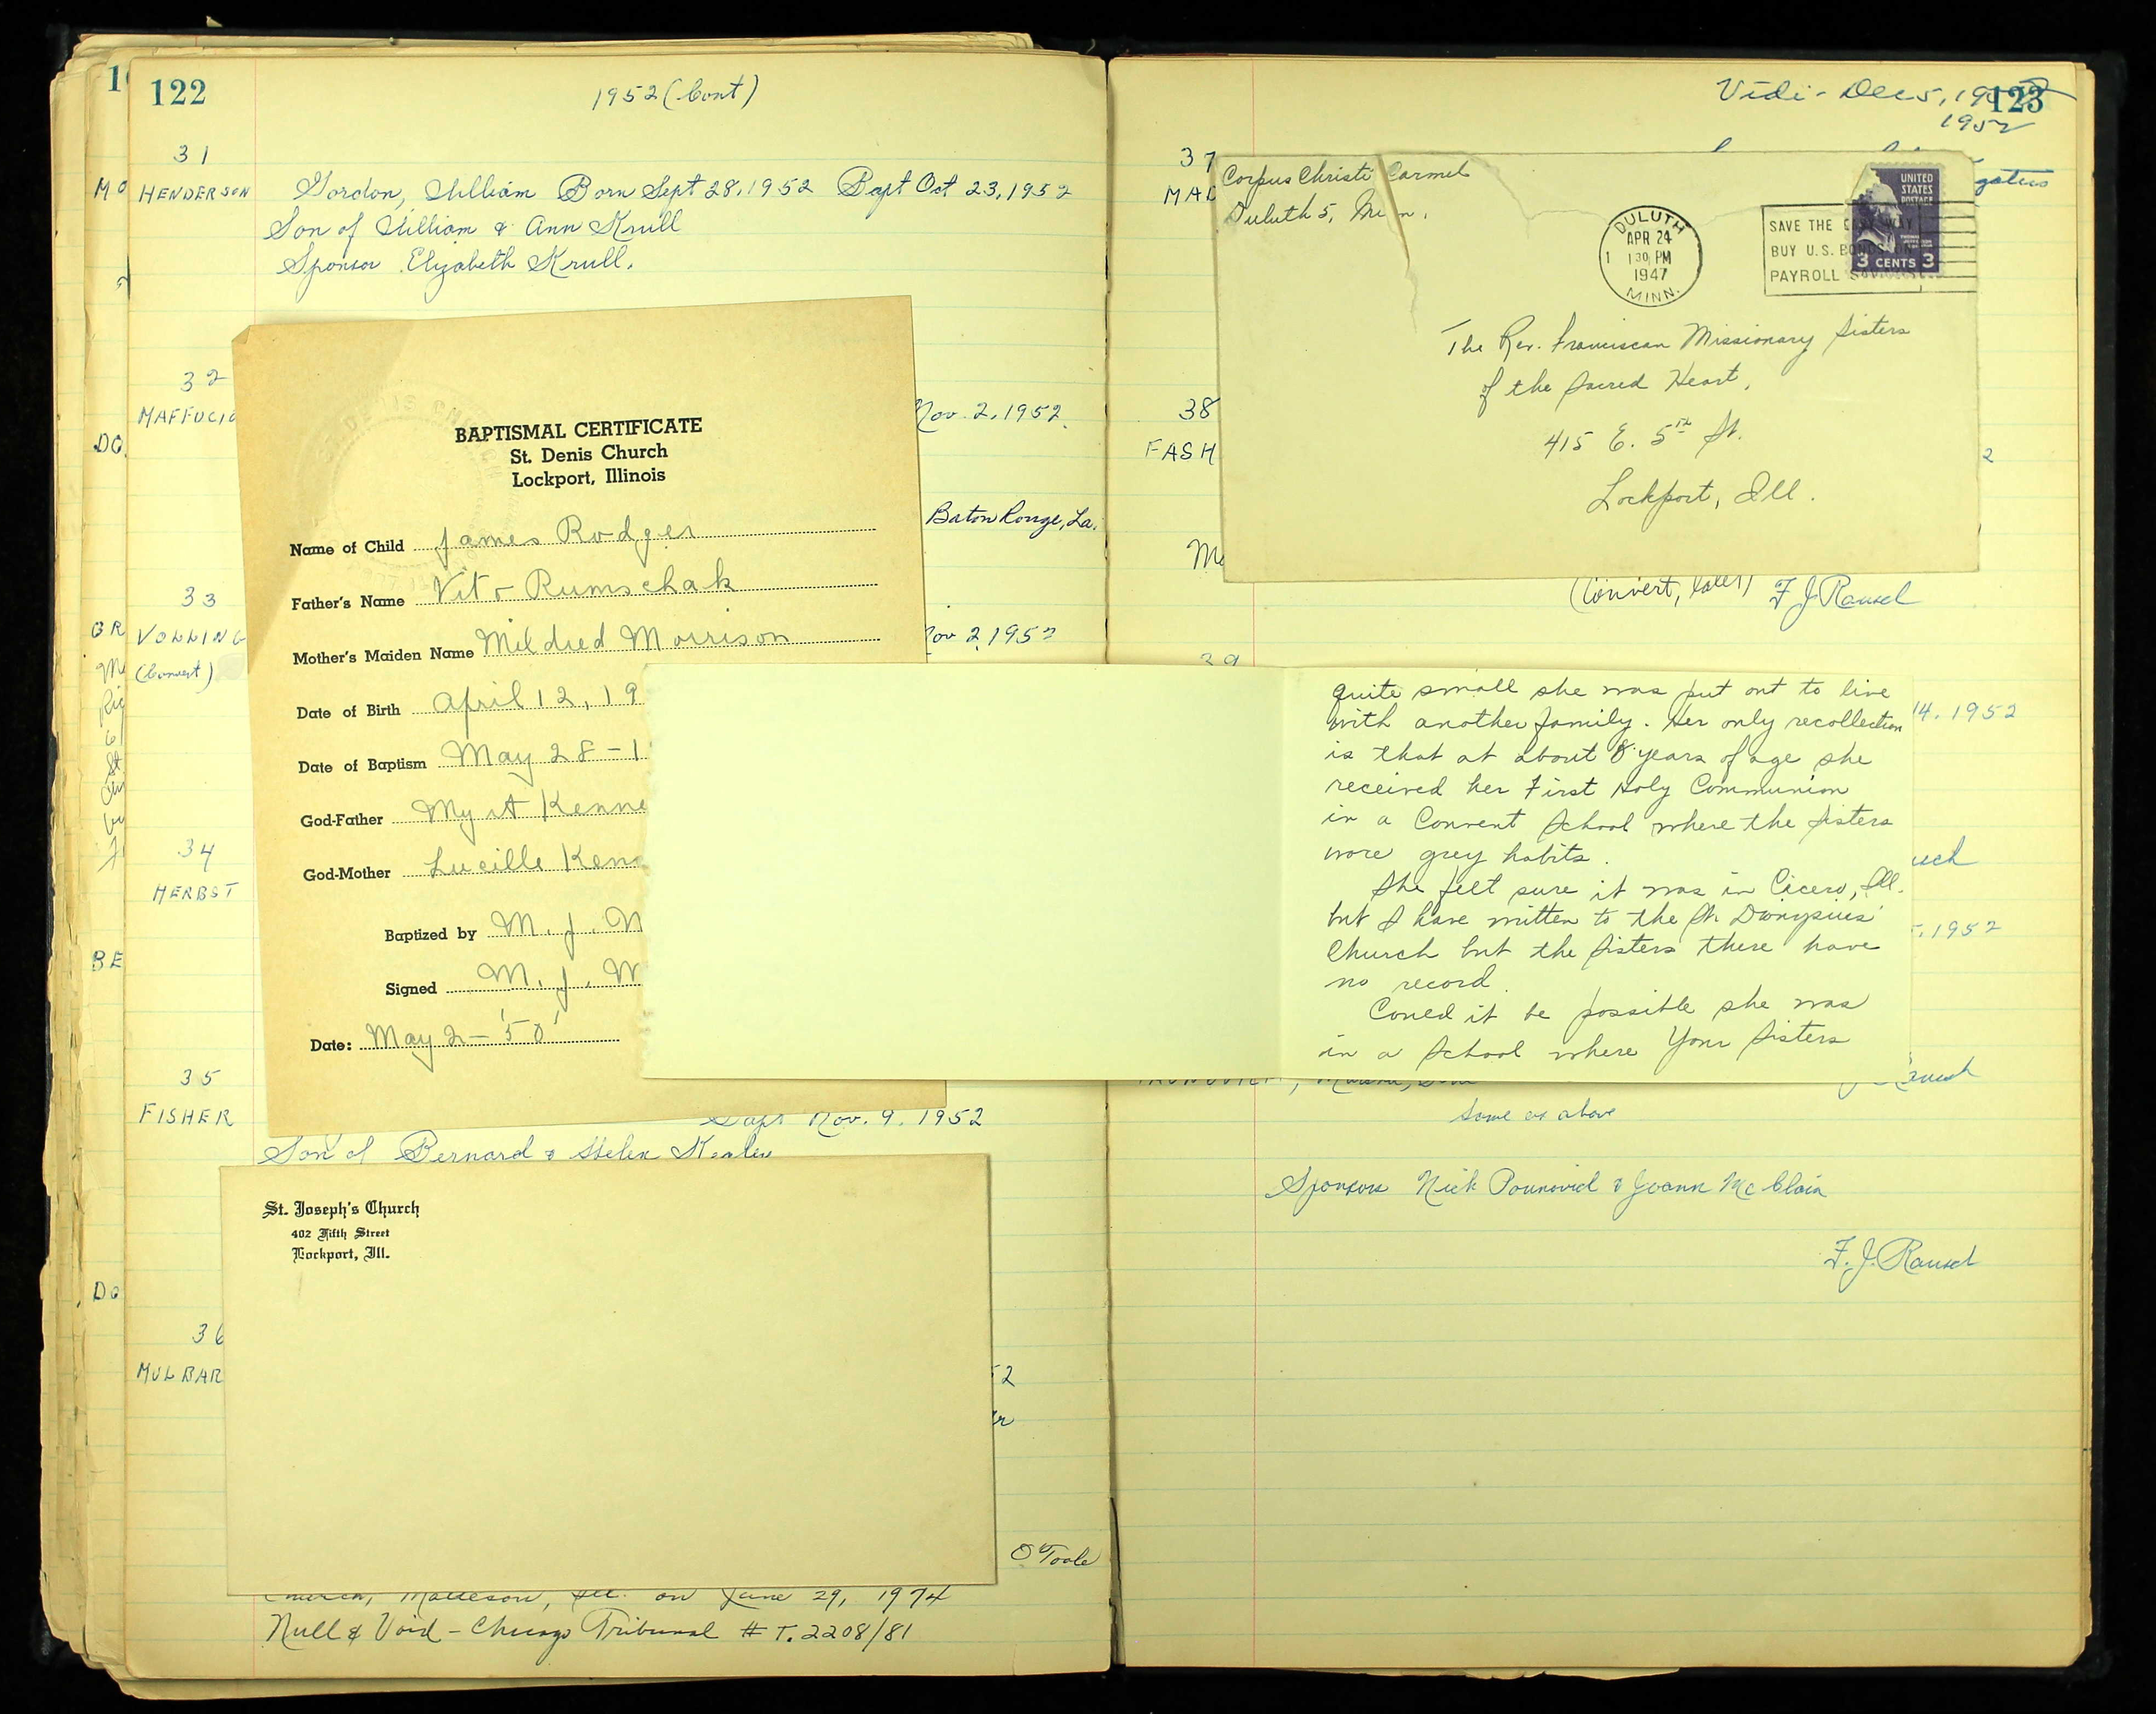 122
1952 (Cont)
31
HENDERSON
Gordon, William Born Sept 28, 1952 Bapt Oct 23, 1952
Son of William & Ann Krull
Sponsor Elizabeth Krull.
32
MAFFUCIO
Nov. 2, 1952.
Baton Rouge, La.
33
VOLLING
(Convert)
Nov 2, 1952
34
HERBST
35
FISHER
Bapt Nov. 9, 1952
Son of Bernard & Helen
36
MULBAR
O'Toole
Church, Matteson, Ill. on June 29, 1974
Null & Void - Chicago Tribunal # T. 2208/81
MO
DO
GR
BE
DO
BAPTISMAL CERTIFICATE
St. Denis Church
Lockport, Illinois
Name of Child James Rodger
Father's Name Vito Rumschak
Mother's Maiden Name Mildred Morrison
Date of Birth April 12, 19
Date of Baptism May 28 - 1
God-Father Myrt Kenne
God-Mother Lucille Kenn
Baptized by M. J.
Signed M. J.
Date: May 2 - '50'
St. Joseph's Church
402 Fifth Street
Lockport, Ill.
123
Vidi - Dec 5, 19
1952
37
MAD
38
FASH
(Convert, F J Rausch
39
14, 1952
1952
same as above
Sponsors Nick & Joann McClain
F. J. Rausch
Corpus Christi Carmel
Duluth 5, Minn.
DULUTH
APR 24
1 30 PM
1947
MINN.
SAVE THE EASY WAY
BUY U.S. BONDS
PAYROLL SAVINGS
UNITED
STATES
POSTAGE
3 CENTS 3
The Rev. Franciscan Missionary Sisters
of the Sacred Heart,
415 E. 5th St.
Lockport, Ill.
quite small she was put out to live
with another family. Her only recollection
is that at about 8 years of age she
received her First Holy Communion
in a Convent School where the Sisters
wore grey habits.
She felt sure it was in Cicero, Ill.
but I have written to the St. Dionysius'
Church but the Sisters there have
no record.
Could it be possible she was
in a School where Your Sisters